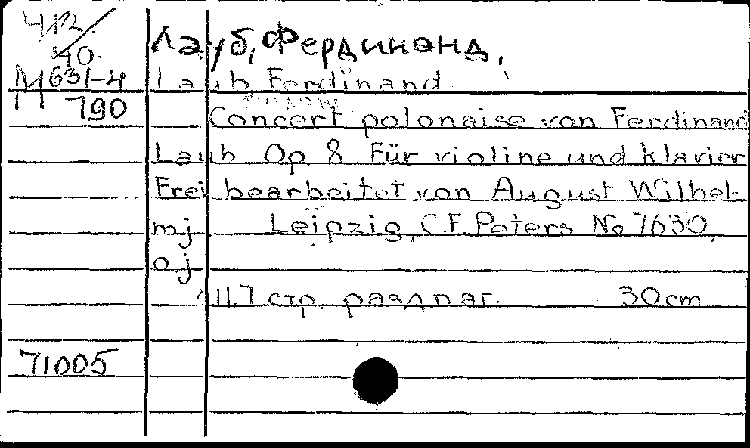 412/40.
Лауб, Фердинанд.
M 631-4
Laub Ferdinand
790
Concert polonaise von Ferdinand
Laub Op. 8 Für violine und klavier
Frei bearbeitet von August Wilhel-
mj Leipzig, C.F. Peters No 7630.
o.j
11.7 стр. разд паг. 30cm
71005